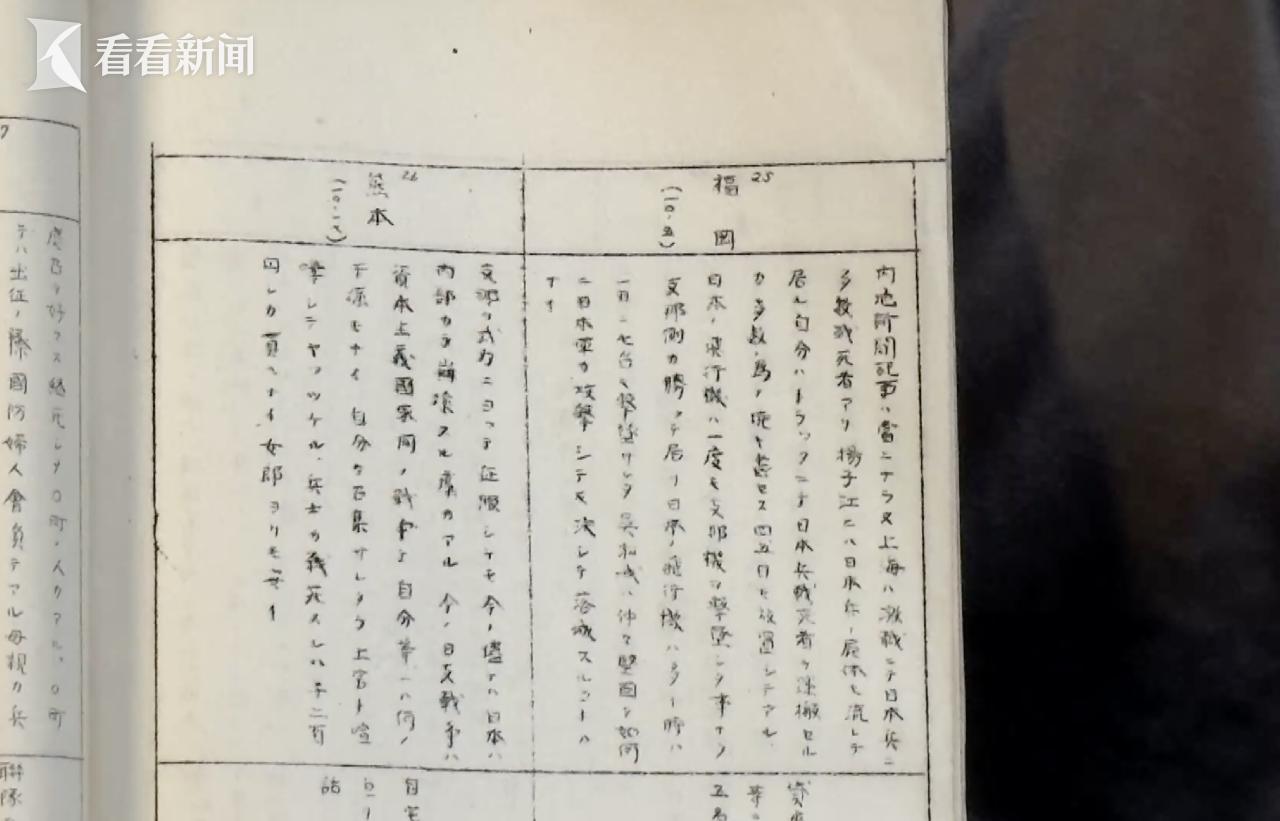 看看新闻
25
福岡
(一〇.五)
内地新聞記事ハ当ニナラヌ上海ハ激戦ニテ日本兵ニ
多数戦死者アリ揚子江ニハ日本兵ノ屍体モ流レテ
居ル自分ハトラックニテ日本兵戦死者ヲ運搬セル
カ多数ノ為ノ焼キ セス四五日モ放置シテアル
日本ノ飛行機ハ一度モ支那機ヲ撃墜シタ事ナク
支那側カ勝ッテ居リ日本ノ飛行機ハ多イ時ハ
一日ニ七台モ撃墜サレタ 呉淞城ハ仲々堅固テ如何
ニ日本軍カ攻撃シテモ決シテ落城スルコトハ
ナイ
26
熊本
支那ヲ武力ニヨッテ征服シテモ今ノ儘テハ日本ハ
内部カラ崩壊スル虞カアル 今ノ日支戦争ハ
資本主義國家同ノ戦争テ自分等ニハ何ノ
干係モナイ 自分カ召集サレタラ上官ト喧
嘩シテヤッツケル、兵士カ戦死スレハ千二百
円シカ貰ヘナイ女郎ヨリモ安イ
自宅
詰
五名
テハ出征ノ際國防婦人會員テアル母親カ兵
聯隊